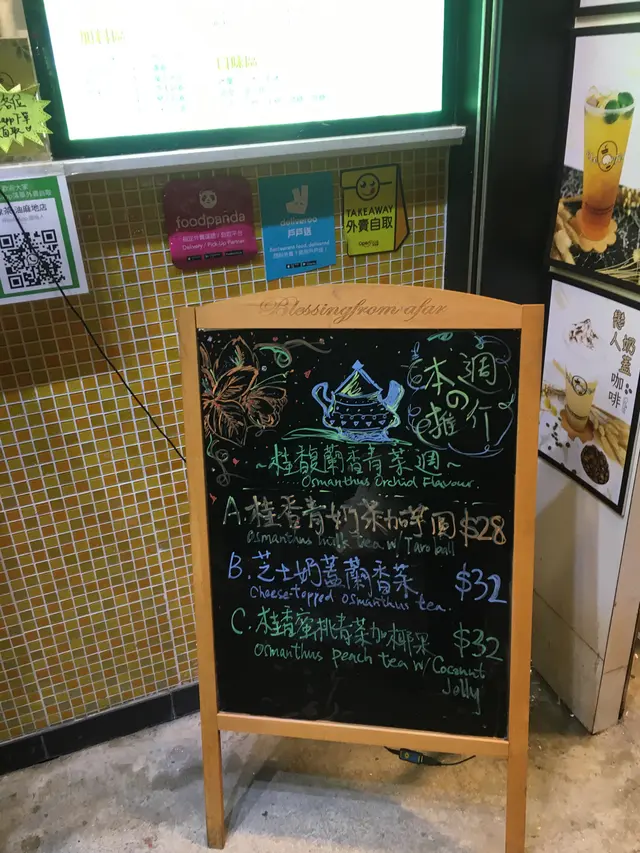 foodpanda
Delivery / Pick-Up Partner
deliveroo
戶戶送
TAKEAWAY
外賣自取
油麻地店
Blessingfrom afar
本週
の
推介
~桂馥蘭香青茶週~
Osmanthus Orchid Flavour.
A. 桂香青奶茶加芋圓 $28
Osmanthus milk tea w/ Taro ball
B. 芝士奶蓋蘭香茶 $32
Cheese-topped osmanthus tea.
C. 桂香蜜桃青茶加椰果 $32
Osmanthus peach tea w/ Coconut
Jelly
戀人奶蓋咖啡